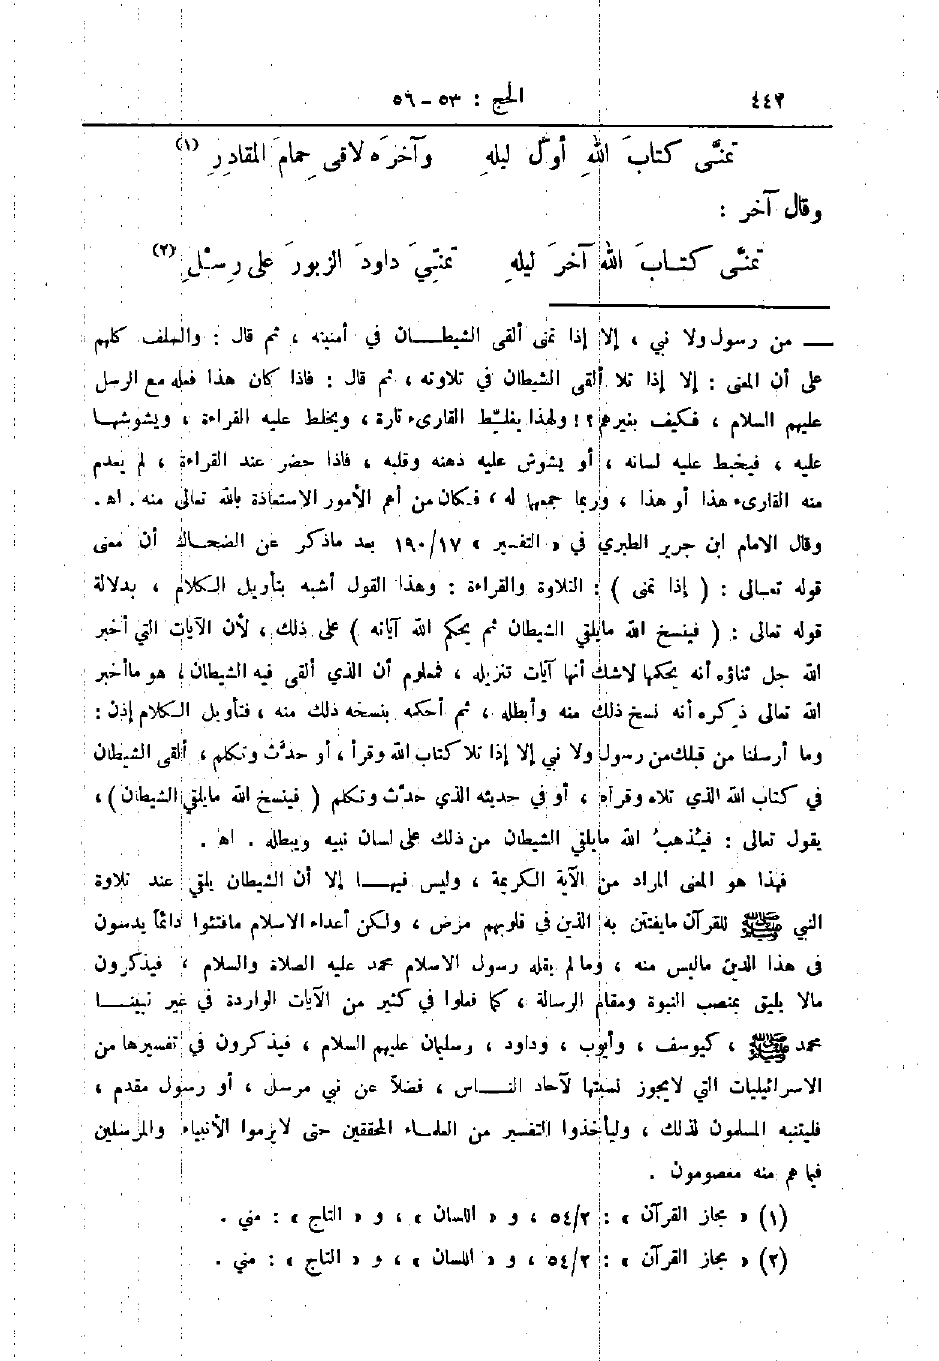 ٤٤٢ الحج : ٥٣ - ٥٦
تمنَّى كتابَ اللهِ أوّل ليلهِ وآخرَه لاقى حِمامَ المقادِرِ (١)
وقال آخر :
تمنَّى كتـابَ اللهِ آخرَ ليلهِ تمنّيَ داودَ الزبورَ على رِسْلِ (٢)
ـــ من رسول ولا نبي ، إلا إذا تمنى ألقى الشيطـــان في أمنيته ، ثم قال : والسلف كلهم
على أن المعنى : إلا إذا تلا ألقى الشيطان في تلاوته ، ثم قال : فاذا كان هذا فعله مع الرسل
عليهم السلام ، فكيف بغيرهم ؟ ! ولهذا يغلّط القارىء تارة ، ويخلط عليه القراءة ، ويشوشهـا
عليه ، فيخبط عليه لسانه ، أو يشوش عليه ذهنه وقلبه ، فاذا حضر عند القراءة ، لم يعدم
منه القارىء هذا أو هذا ، وربما جمعها له ، فـكان من أهم الأمور الاستعاذة بالله تعالى منه . اهـ .
وقال الامام ابن جرير الطبري في « التفسير » ١٧/١٩٠ بعد ماذكر عن الضحـاك أن معنى
قوله تعـالى : ( إذا تمنى ) : التلاوة والقراءة : وهذا القول أشبه بتأويل الـكلام ، بدلالة
قوله تعالى : ( فينسخ الله مايلقي الشيطان ثم يحكم الله آياته ) على ذلك ، لأن الآيات التي أخبر
الله جل ثناؤه أنه يحكمها لاشك أنها آيات تنزيله ، فمعلوم أن الذي ألقى فيه الشيطان ، هو ماأخبر
الله تعالى ذكره أنه نسخ ذلك منه وأبطله ، ثم أحكمه بنسخه ذلك منه ، فتأويل الـكلام إذن :
وما أرسلنا من قبلك من رسول ولا نبي إلا إذا تلا كتاب الله وقرأ ، أو حدَّث وتكلم ، ألقى الشيطان
في كتاب الله الذي تلاه وقرأه ، أو في حديثه الذي حدّث وتكلم ( فينسخ الله مايلقي الشيطان ) ،
يقول تعالى : فيُذهبُ الله مايلقي الشيطان من ذلك على لسان نبيه ويبطله . اهـ .
فهذا هو المعنى المراد من الآية الكريمة ، وليس فيهـا إلا أن الشيطان يلقي عند تلاوة
النبي ﷺ للقرآن مايفتتن به الذين في قلوبهم مرض ، ولكن أعداء الاسلام مافتئوا دائماً يدسون
في هذا الدين ماليس منه ، ومالم يقله رسول الاسلام محمد عليه الصلاة والسلام ، فيذكرون
مالا يليق بمنصب النبوة ومقام الرسالة ، كما فعلوا في كثير من الآيات الواردة في غير نبينـــا
محمد ﷺ ، كيوسف ، وأيوب ، وداود ، وسليمان عليهم السلام ، فيذكرون في تفسيرها من
الاسرائيليات التي لايجوز نسبتها لآحاد النـــاس ، فضلاً عن نبي مرسل ، أو رسول مقدم ،
فليتنبه المسلمون لذلك ، وليأخذوا التفسير من العلمـاء المحققين حتى لايرموا الأنبياء والمرسلين
فيما هم منه معصومون .
(١) « مجاز القرآن » : ٥٤/٢ ، و « اللسان » ، و « التاج » : مني .
(٢) « مجاز القرآن » : ٥٤/٢ ، و « اللسان » ، و « التاج » : مني .